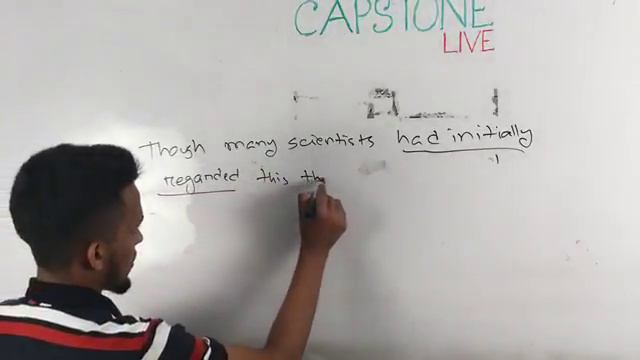 CAPSTONE
LIVE
Though many scientists had initially
regarded this th